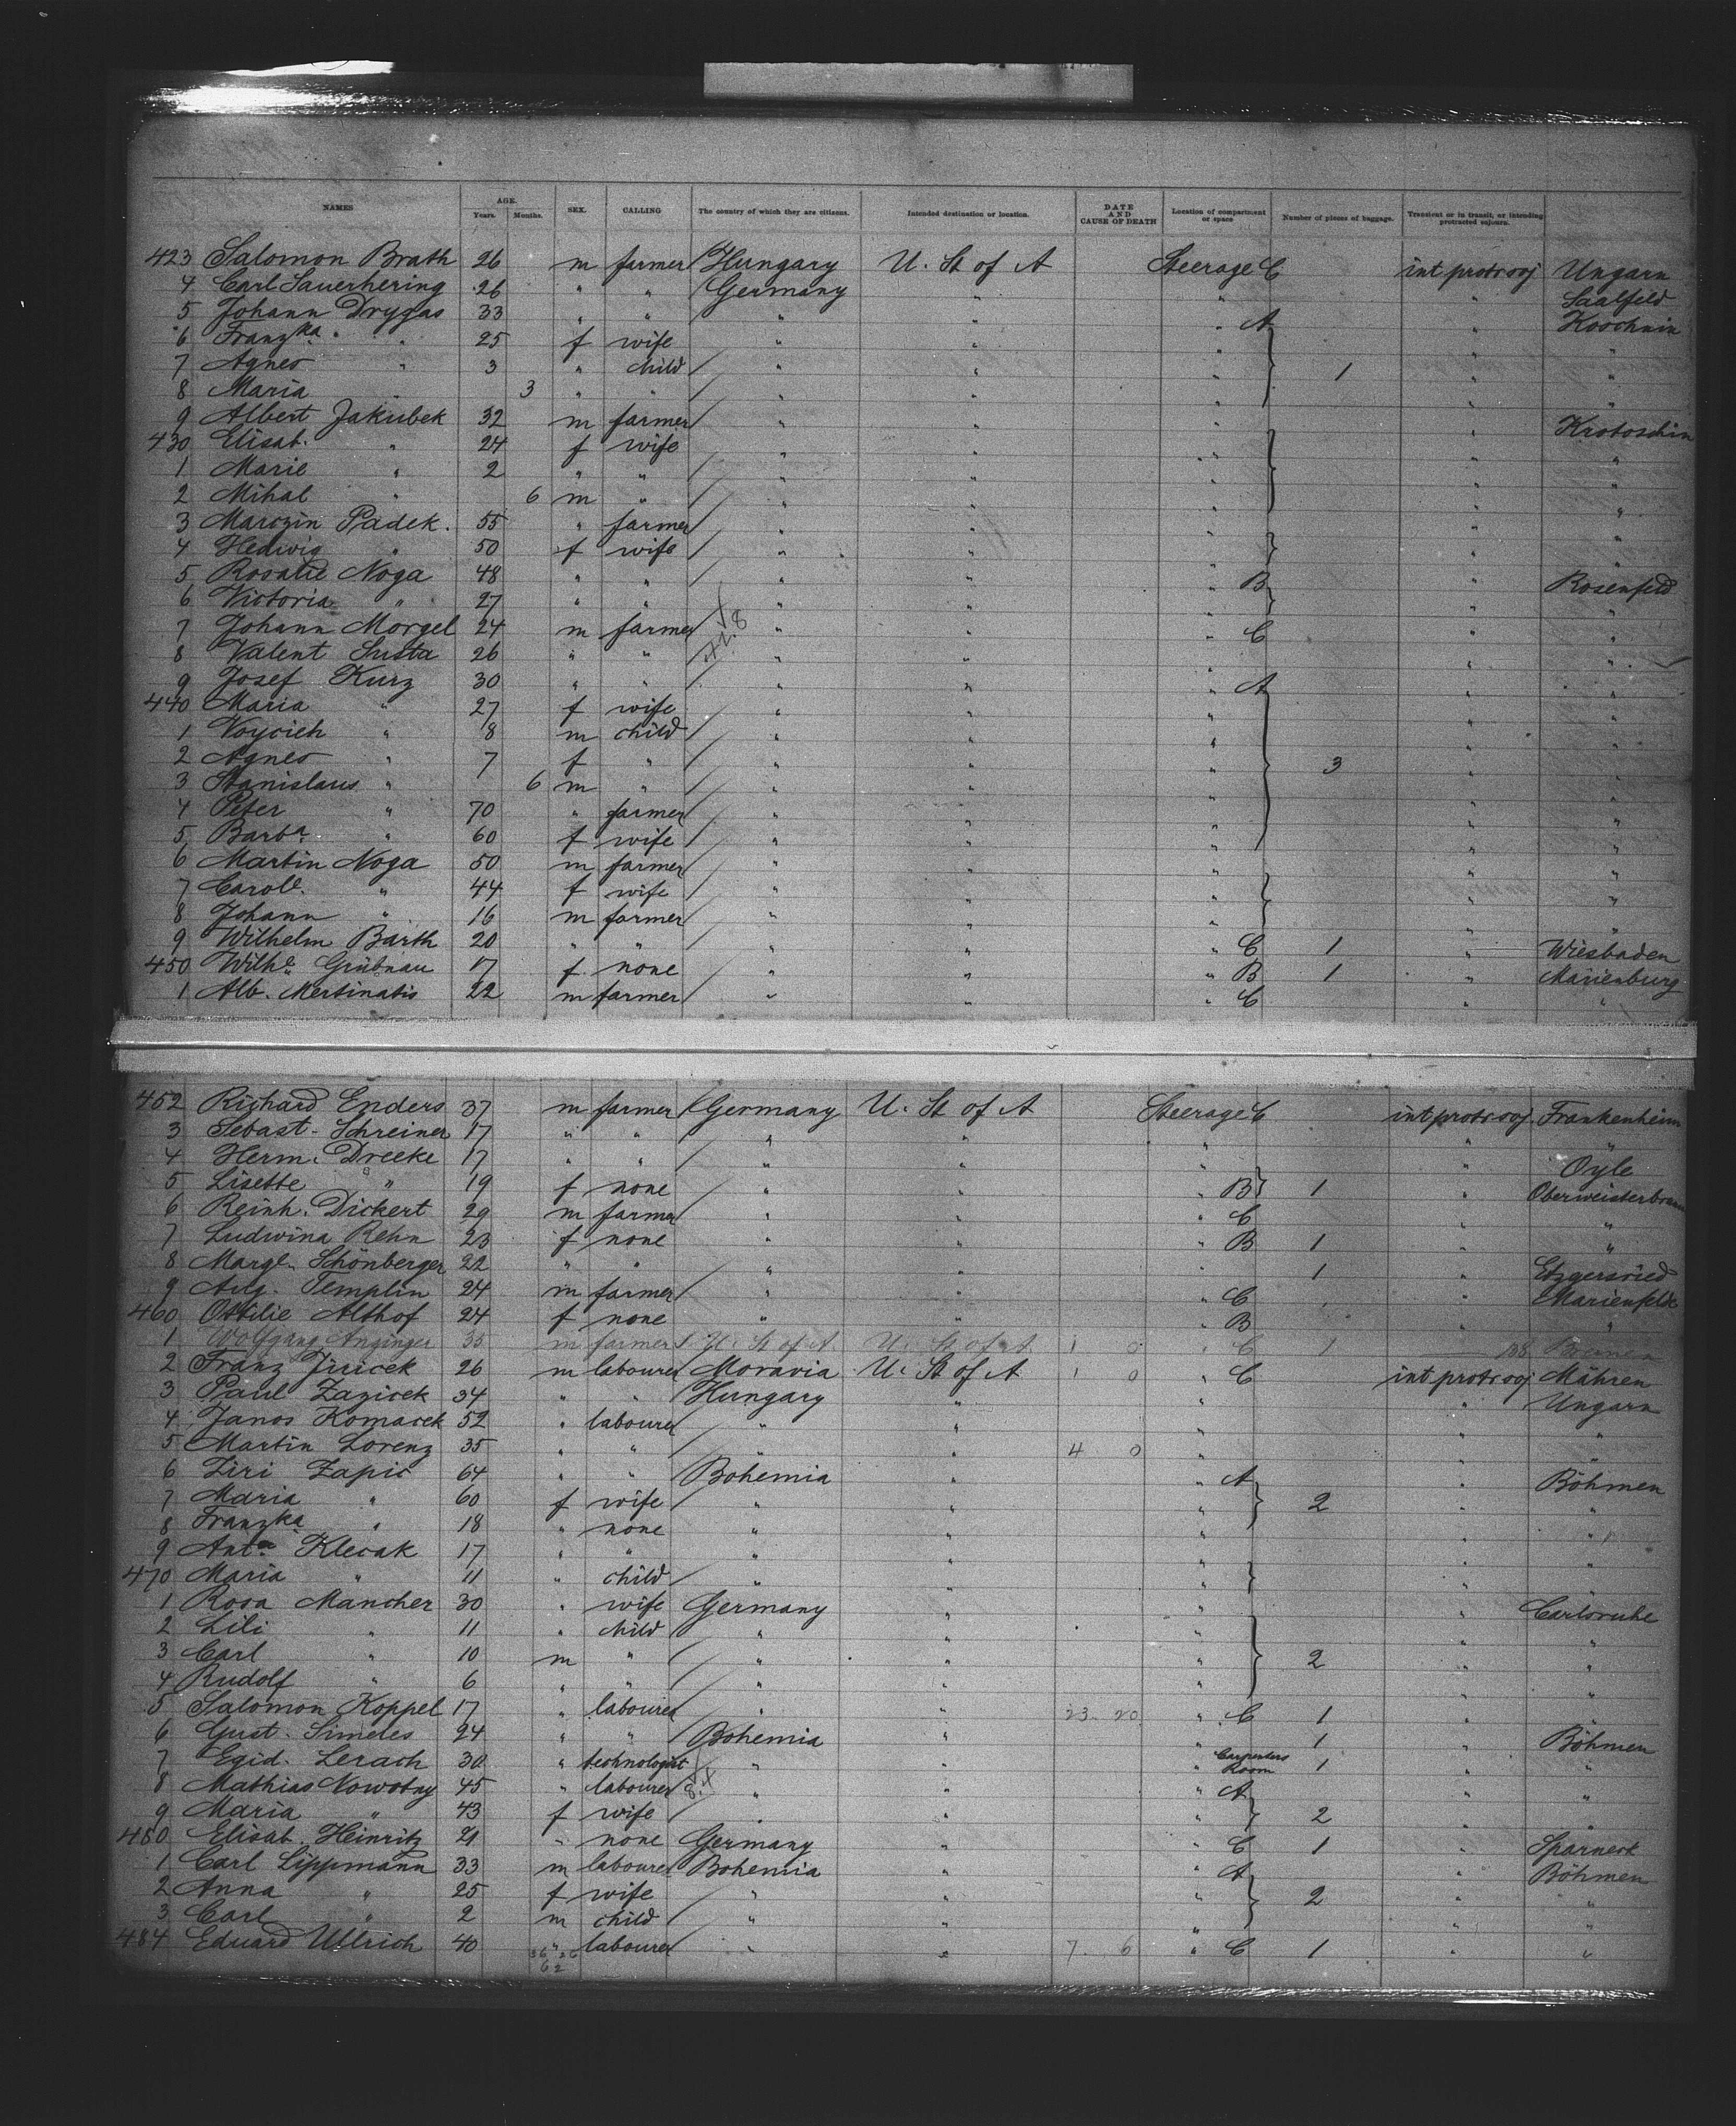 NAMES AGE. Years. Months. SEX. CALLING The country of which they are citizens. Intended destination or location. DATE AND CAUSE OF DEATH Location of compartment or space Number of pieces of baggage. Transient or in transit, or intending protracted sojourn.
423 Salomon Brath 26 m farmer Hungary U. St of A Steerage C int protr soj Ungarn
4 Carl Sauerhering 26 " " Germany " " " Saalfeld
5 Johann Drygas 33 " " " " " A " Koschmin
6 Franzka " 25 f wife " " " " "
7 Agnes " 3 " child " " " 1 " "
8 Maria " 3 " " " " " " "
9 Albert Jakubek 32 m farmer " " " " Krotoschin
430 Elisab. " 24 f wife " " " " "
1 Marie " 2 " " " " " " "
2 Mihal " 6 m " " " " " "
3 Marczin Padek. 55 " farmer " " " " "
4 Hedwig " 50 f wife " " " " "
5 Rosalie Noga 48 " " " " " B " Rosenfeld
6 Victoria " 27 " " " " " " "
7 Johann Morgel 24 m farmer " " " C " "
8 Valent Susta 26 " " " " " " "
9 Josef Kurz 30 " " " " " A " "
440 Maria " 27 f wife " " " " "
1 Voycieh " 8 m child " " " " "
2 Agnes " 7 f " " " " 3 " "
3 Stanislaus " 6 m " " " " " "
4 Peter " 70 " farmer " " " " "
5 Barba " 60 f wife " " " " "
6 Martin Noga 50 m farmer " " " " "
7 Carole. " 44 f wife " " " " "
8 Johann " 16 m farmer " " " " "
9 Wilhelm Barth 20 " " " " " C 1 " Wiesbaden
450 Wilhe. Grübnau 17 f none " " " B 1 " Marienburg
1 Alb. Mertinatis 22 m farmer " " " C " "
452 Richard Enders 37 m farmer Germany U. St of A Steerage C int protr soj. Frankenheim
3 Sebast. Schreiner 17 " " " " " " "
4 Herm. Dreeke 17 " " " " " " Oyle
5 Lisette " 19 f none " " " B 1 " Oberweisterbrunn
6 Reinh. Dickert 29 m farmer " " " C " "
7 Ludwina Rehn 23 f none " " " B 1 " "
8 Margt. Schönberger 22 " " " " " 1 " Etzgersried
9 Aug. Templin 24 m farmer " " " C " Marienfelde
460 Ottilie Althof 24 f none " " " B " "
1 Wolfgang Anzinger 35 m farmer U. St of A U. St of A 1 0 " C 1
2 Franz Jiricek 26 m labourer Moravia U. St of A 1 0 " C int protr soj Mähren
3 Paul Zazicek 34 " " Hungary " " " Ungarn
4 Janos Komacek 52 " labourer " " " " "
5 Martin Lorenz 35 " " " " 4 0 " " "
6 Ziri Zapic 64 " " Bohemia " " A " Böhmen
7 Maria " 60 f wife " " " 2 " "
8 Franzka " 18 " none " " " " "
9 Anta Klecak 17 " " " " " " "
470 Maria " 11 " child " " " " "
1 Rosa Mancher 30 " wife Germany " " " Carlsruhe
2 Lili " 11 " child " " " " "
3 Carl " 10 m " " " " 2 " "
4 Rudolf " 6 " " " " " " "
5 Salomon Koppel 17 " labourer " " 23 20 " C 1 " "
6 Gust. Simeles 24 " " Bohemia " " 1 " Böhmen
7 Egid. Lerach 30 " technologist " " " Carpenters Room 1 " "
8 Mathias Nowotny 45 " labourer " " " A " "
9 Maria " 43 f wife " " " 2 " "
480 Elisab. Heinritz 21 " none Germany " " C 1 " Sparneck
1 Carl Lippmann 33 m labourer Bohemia " " A " Böhmen
2 Anna " 25 f wife " " " 2 " "
3 Carl " 2 m child " " " " "
484 Eduard Ullrich 40 " labourer " " 7 6 " C 1 " "
62